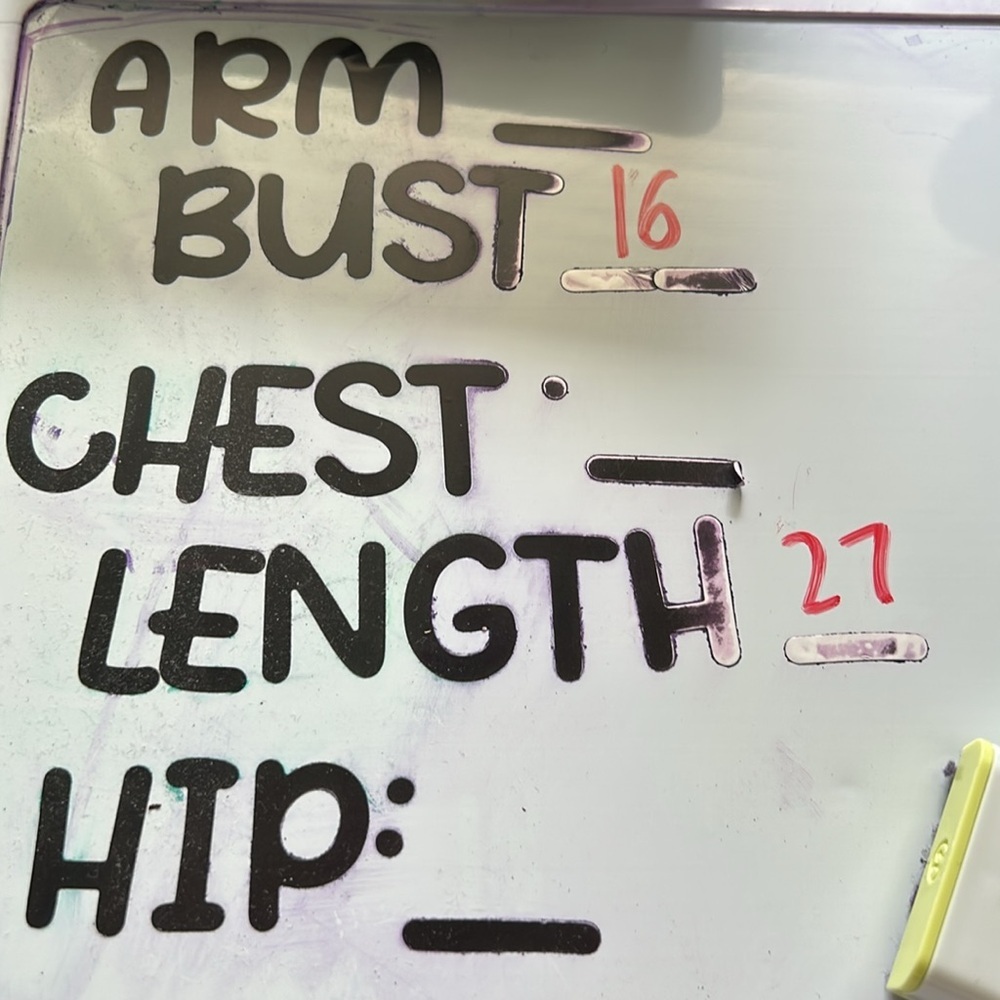 ARM __
BUST 16
CHEST . __
LENGTH 27
HIP: __